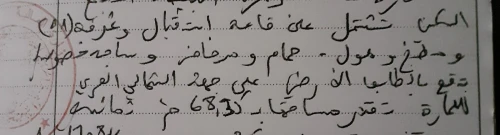 السكن تشتمل على قاعة استقبال وغرفة (01)
و مطبخ و هول - حمام و مرحاض و ساحة خصوصية
تقع بالطابق الأرضي على جهة الشمالي الغربي
للعمارة تقدر مساحتها بـ 68,30 م² ثمانية